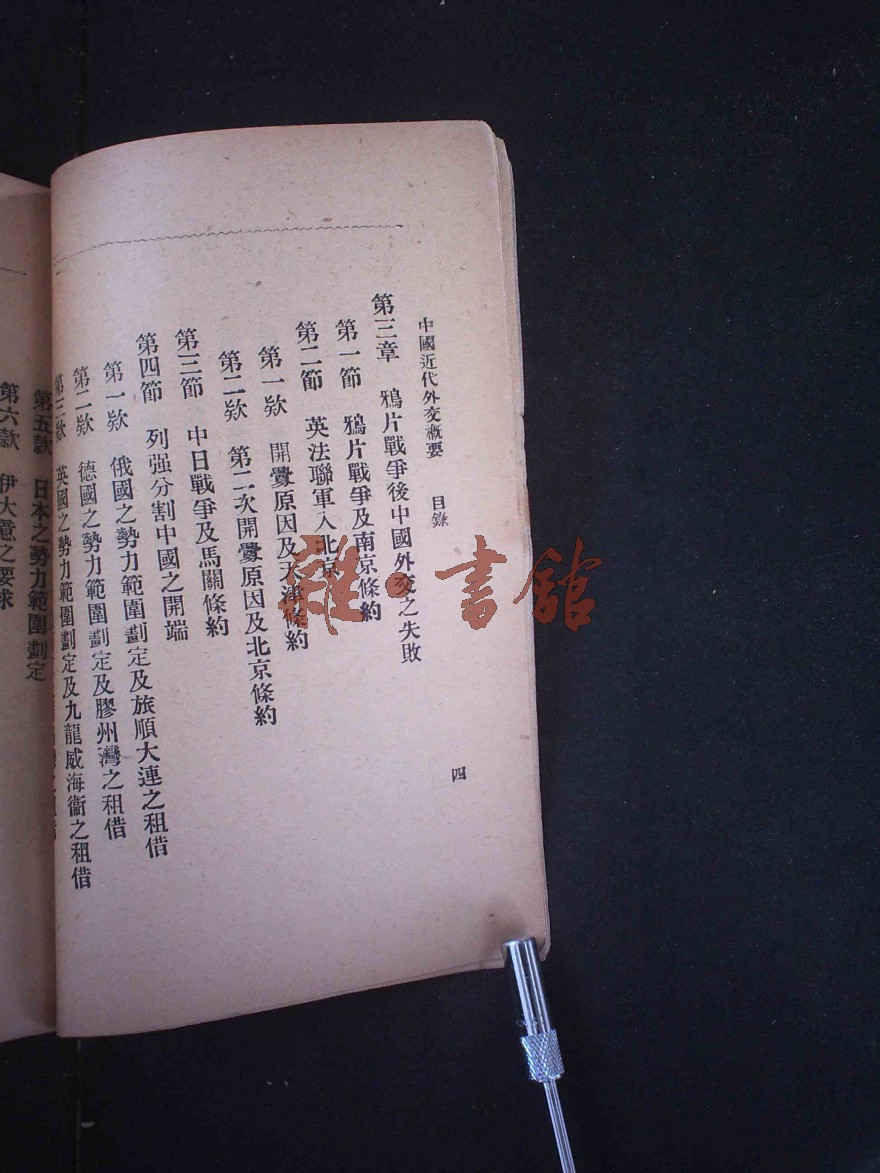 中國近代外交概要 目錄 四
第三章 鴉片戰爭後中國外交之失敗
第一節 鴉片戰爭及南京條約
第二節 英法聯軍入北京
第一欵 開釁原因及天津條約
第二欵 第二次開釁原因及北京條約
第三節 中日戰爭及馬關條約
第四節 列强分割中國之開端
第一欵 俄國之勢力範圍劃定及旅順大連之租借
第二欵 德國之勢力範圍劃定及膠州灣之租借
第三欵 英國之勢力範圍劃定及九龍威海衞之租借
第五款 日本之勢力範圍劃定
第六款 伊大意之要求
雜·書館